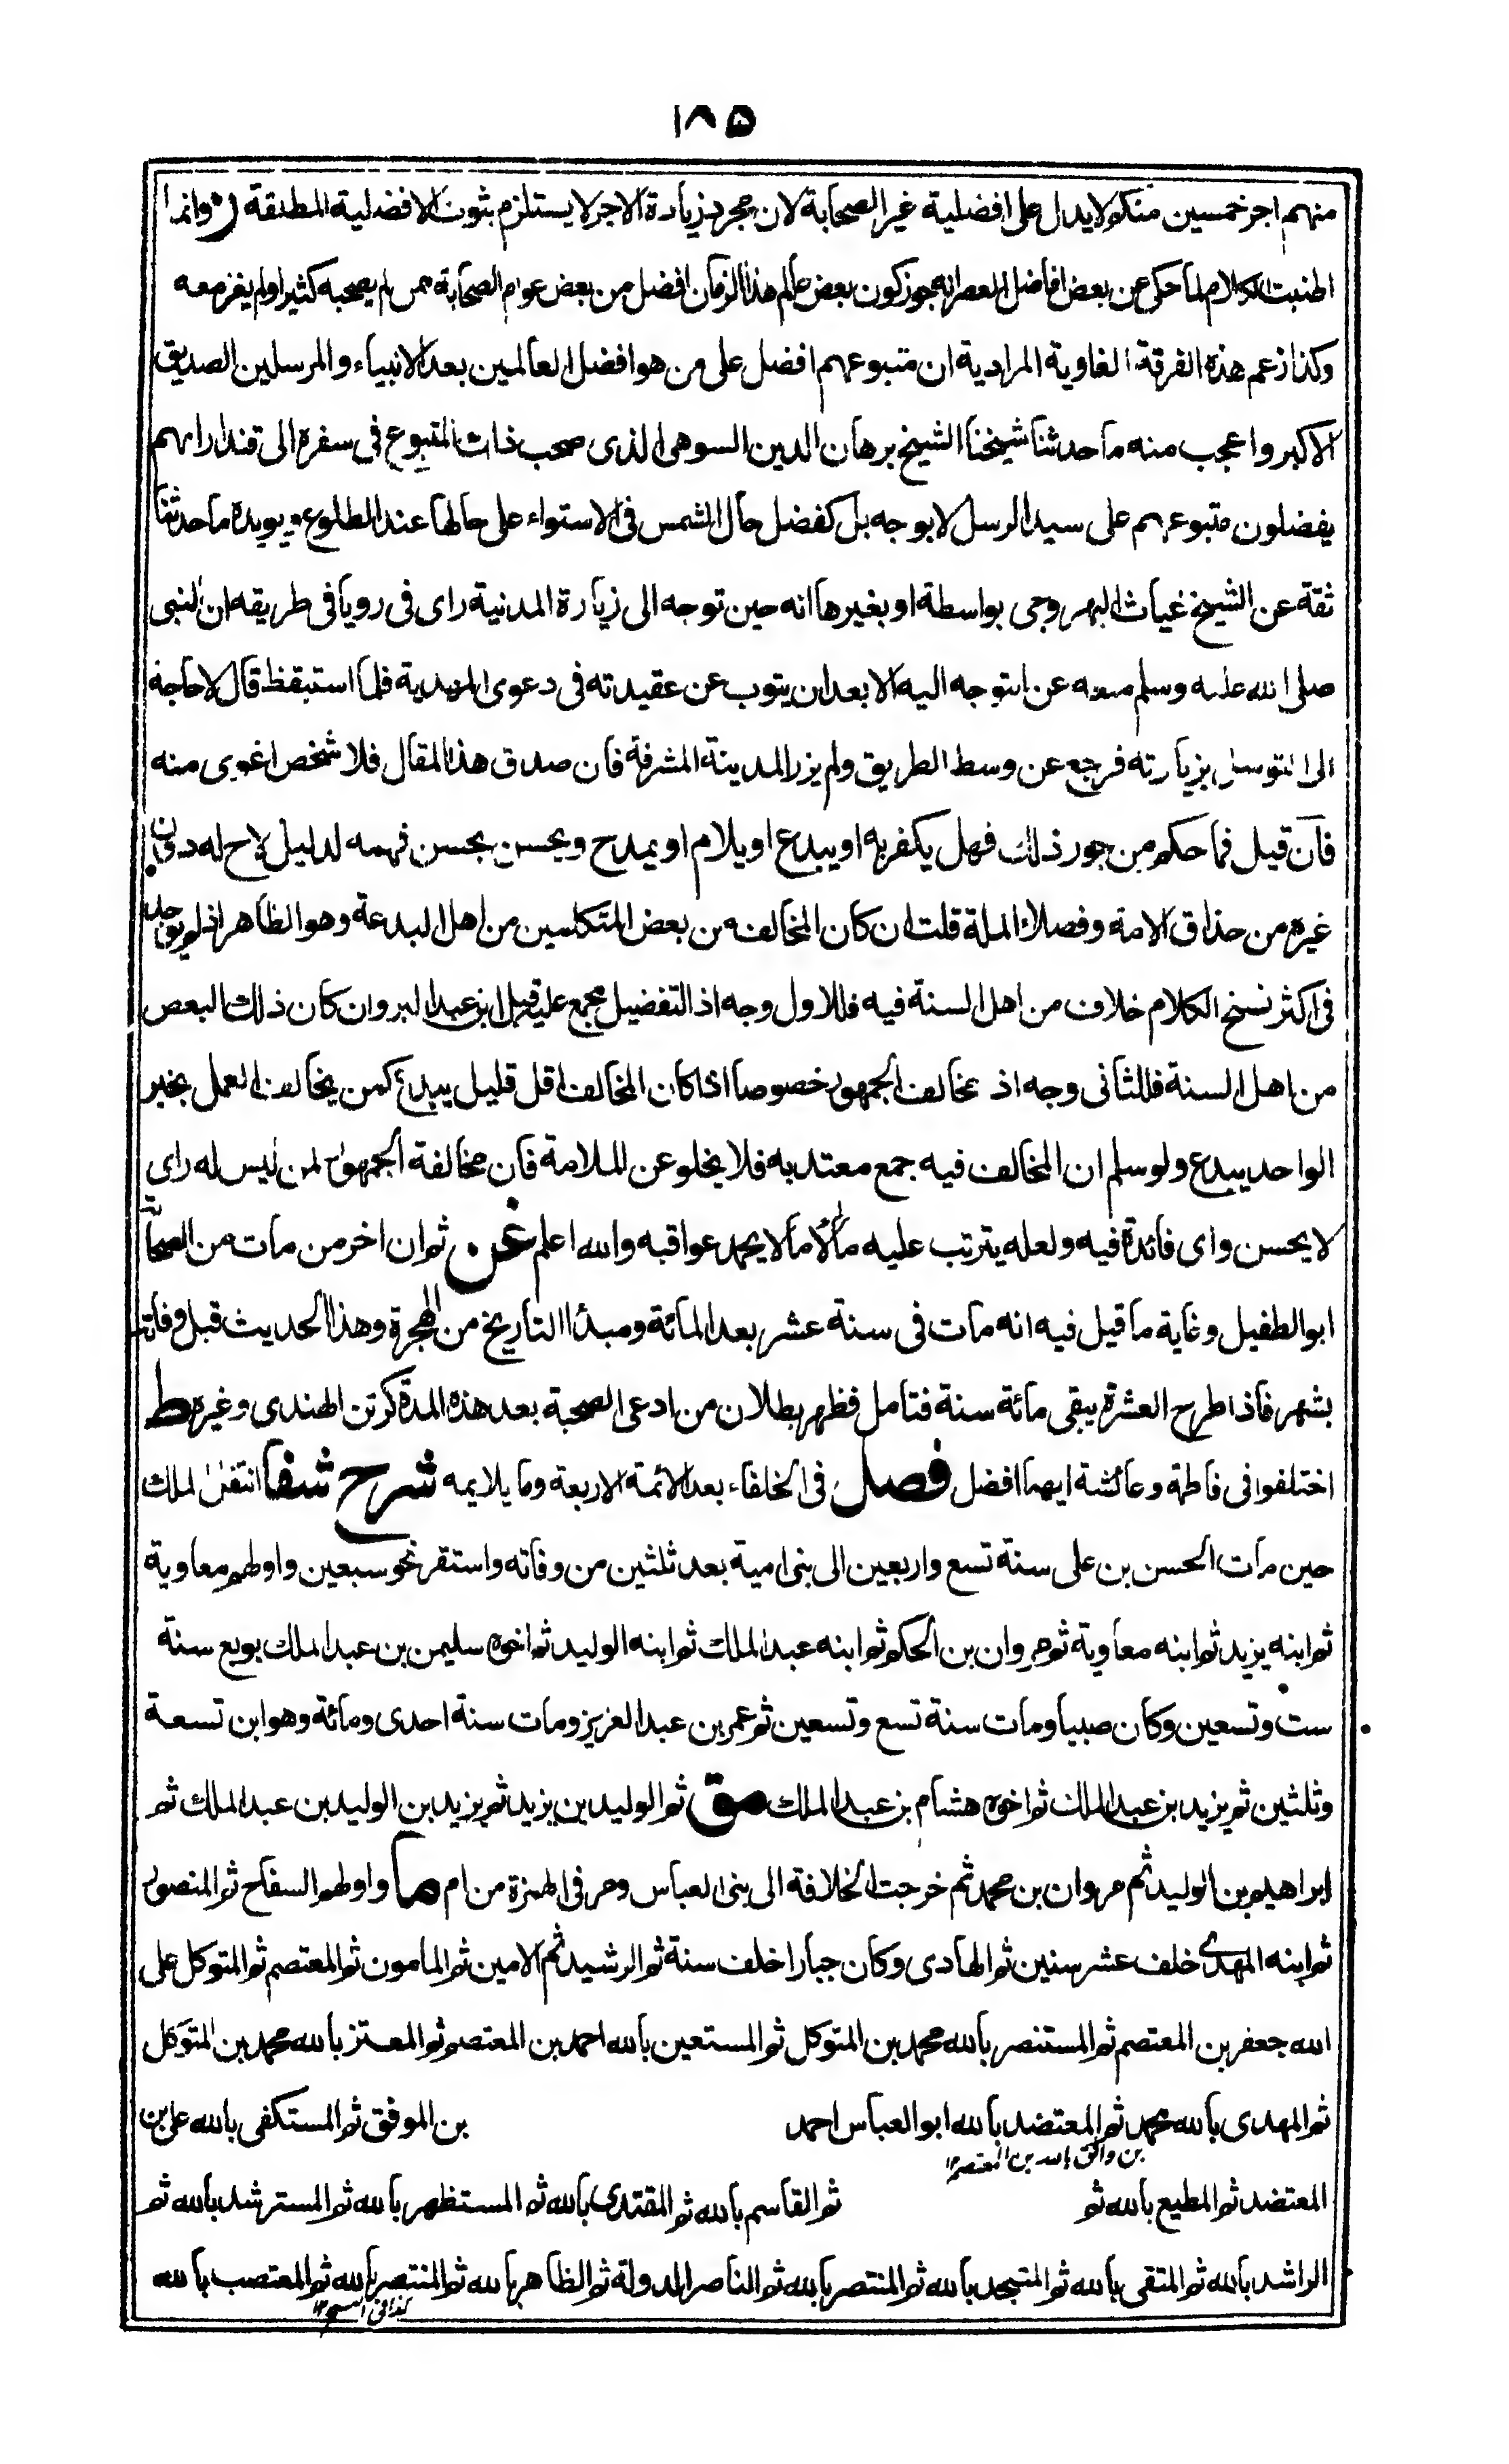 ١٨٥
منهم اجر خمسين منكم لا يدل على افضلية غير الصحابة لان مجرد زيادة الاجر لا يستلزم ثبوت الافضلية المطلقة ره وانما
اطنبت الكلام لما حكى عن بعض افاضل العصر انه جوز كون بعض عالم هذا الزمان افضل من بعض عوام الصحابة ممن لم يصحبه كثيرا ولم يغز معه
وكذا زعم هذه الفرقة الغاوية المرادية ان متبوعهم افضل على من هو افضل العالمين بعد الانبياء والمرسلين الصديق
الاكبر واعجب منه ما حدثنا شيخنا الشيخ برهان الدين السوهى الذى صحب ذات المتبوع فى سفره الى قندار انهم
يفضلون متبوعهم على سيد الرسل لا بوجه بل كفضل حال الشمس فى الاستواء على حالها عند الطلوع ويويده ما حدثنا
ثقة عن الشيخ غياث البهروجى بواسطة او بغيرها انه حين توجه الى زيارة المدنية راى فى رويا فى طريقه ان النبى
صلى الله عليه وسلم منعه عن التوجه اليه الا بعد ان يتوب عن عقيدته فى دعوى المهدية فلما استيقظ قال لا حاجة
الى التوسل بزيارته فرجع عن وسط الطريق ولم يزر المدينة المشرفة فان صدق هذا المقال فلا شخص اغوى منه
فان قيل فما حكم من جوز ذلك فهل يكفر به او يبدع او يلام او يمدح ويحسن بحسن فهمه لدليل لاح له دون
غيره من حذاق الامة وفضلاء الملة قلت ان كان المخالف من بعض المتكلمين من اهل البدعة وهو الظاهر اذ لم يوجد
فى اكثر نسخ الكلام خلاف من اهل السنة فيه فللاول وجه اذ التفضيل مجمع عليه قبل ابن عبد البر وان كان ذلك البعض
من اهل السنة فللثانى وجه اذ مخالف الجمهور خصوصا اذا كان المخالف اقل قليل يبدع كمن يخالف العمل بخبر
الواحد يبدع ولو سلم ان المخالف فيه جمع معتد به فلا يخلو عن للملامة فان مخالفة الجمهور لمن ليس له راى
لا يحسن واى فائدة فيه ولعله يترتب عليه مالا ما لا يحمد عواقبه والله اعلم غن ثم ان اخر من مات من الصحابة
ابو الطفيل وغاية ما قيل فيه انه مات فى سنة عشر بعد المائة ومبدأ التاريخ من الهجرة وهذا الحديث قبل وفاته
بشهر فاذا طرح العشرة يبقى مائة سنة فتامل فظهر بطلان من ادعى الصحبة بعد هذه المدة كرتن الهندى وغيره ط
اختلفوا فى فاطمة وعائشة ايهما افضل فصل فى الخلفاء بعد الائمة الاربعة وما يلايمه شرح شفا انتقل الملك
حين مات الحسن بن على سنة تسع واربعين الى بنى امية بعد ثلثين من وفاته واستقر نحو سبعين واولهم معاوية
ثم ابنه يزيد ثم ابنه معاوية ثم مروان بن الحكم ثم ابنه عبد الملك ثم ابنه الوليد ثم اخوه سليمن بن عبد الملك بويع سنة
ست وتسعين وكان صبيا ومات سنة تسع وتسعين ثم عمر بن عبد العزيز ومات سنة احدى ومائة وهو ابن تسعة
وثلثين ثم يزيد بن عبد الملك ثم اخوه هشام بن عبد الملك مق ثم الوليد بن يزيد ثم يزيد بن الوليد بن عبد الملك ثم
ابراهيم بن الوليد ثم مروان بن محمد ثم خرجت الخلافة الى بنى العباس ومر فى الهمزة من ام ما واولهم السفاح ثم المنصور
ثم ابنه المهدى خلف عشر سنين ثم الهادى وكان جبارا خلف سنة ثم الرشيد ثم الامين ثم المامون ثم المعتصم ثم المتوكل على
الله جعفر بن المعتصم ثم المستنصر بالله محمد بن المتوكل ثم المستعين بالله احمد بن المعتصم ثم المعتز بالله محمد بن المتوكل
ثم المهدى بالله محمد ثم المعتضد بالله ابو العباس احمد بن الموفق ثم المستكفى بالله على بن
بن واثق بالله بن المعتصم ١٢
المعتضد ثم المطيع بالله ثم ثم القاسم بالله ثم المقتدى بالله ثم المستظهر بالله ثم المسترشد بالله ثم
الراشد بالله ثم المتقى بالله ثم المتبجد بالله ثم المنتصر بالله ثم الناصر الدولة ثم الظاهر بالله ثم المنتصر بالله ثم المعتصب بالله
كذا فى النسخ ١٢